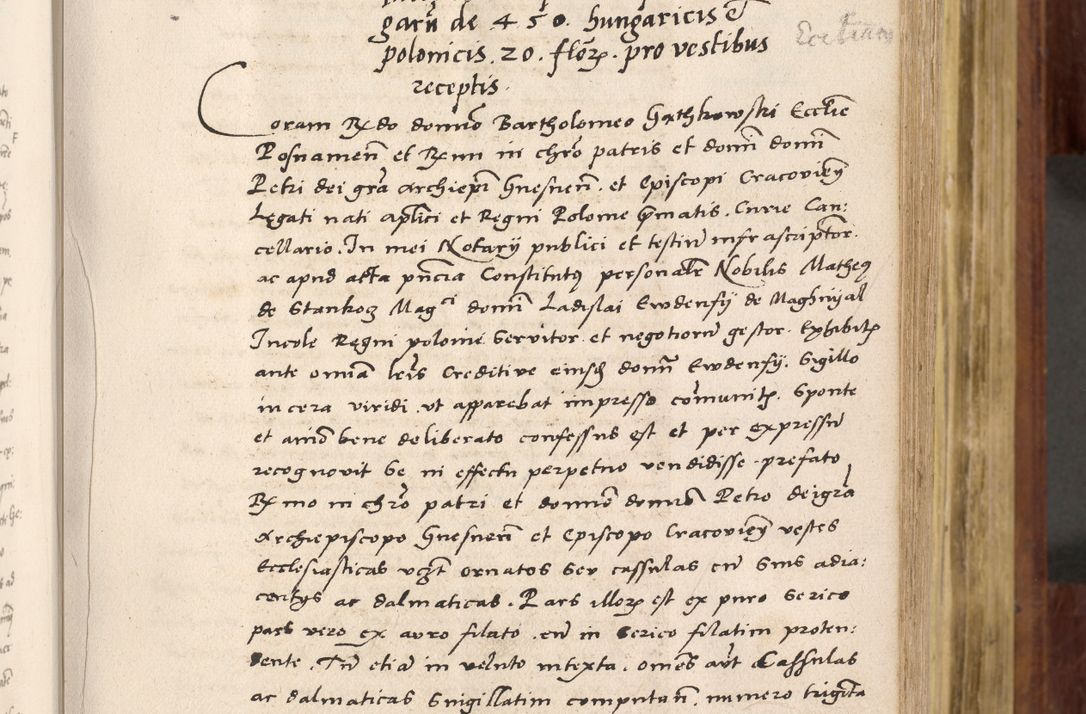 garū de 450. hungaricis et
polonicis. 20. floꝝ. pro vestibus
receptis.
Coram Rᷣdo domīo Bartholomeo Gąthkowski Eccᷝie
Posnameñ et Rᷣmi in chrō patris et domī domī
Petri dei grā Archiepī Gnesneñ. et Episcopi Cracovieñ
Legati nati apl̄ici et Regni Polonie pͥmatis. Curie Can:
cellario. In mei Notarij publici et testiū infrascriptoꝝ.
ac apud acta pn̄cia Constitutꝯ personalr̄ Nobilis Matheꝯ
de Stankoꝫ Magᶜⁱ domī Ladislai Ewdenfij de Maghnijal
Incole Regni polonie Servitor et negotiorū gestor. Exhibitꝭ
ante omnīa lr̄is Creditive eiusdꝫ domī Ewdenfij. Sigillo
in cera viridi. ut apparebat impresso cōmunitꝭ. Sponte
et aīo bene deliberato confessus est et per expressū
recognovit Se in effectu perpetuo vendidisse prefato
Rᷣmo in chrō patri et domīo domīo Petro dei grā
Archiepiscopo Gnesneñ et Episcopo Cracovieñ vestes
Ecclesiasticas vꝫt ornatos Seu cassulas cū Suis adia:
centijs ac dalmaticas. Pars illoꝝ est ex puro Serico
pars vero ex auro filato. cū in Serico filatim proten:
dente. Tū etiā in veluto intexta. omēs aūt Cassulas
ac dalmaticas Snigillatim computañ. numero trigīta